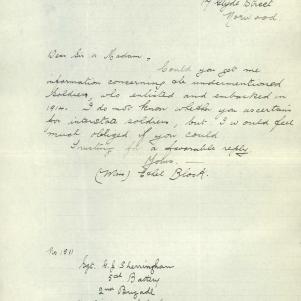 Clyde Street
Norwood.
Dear Sir or Madam,
Could you get me
information concerning the undermentioned
Soldier, who enlisted and embarked in
1914. I do not know whether you ascertain
for interstate soldiers, but I would feel
much obliged if you could
Trusting for a favorable reply
Yours. —
(Miss) Ethel Block.
No 1911
Sgt. H. J. Sherringham
5th Battery
2nd Brigade